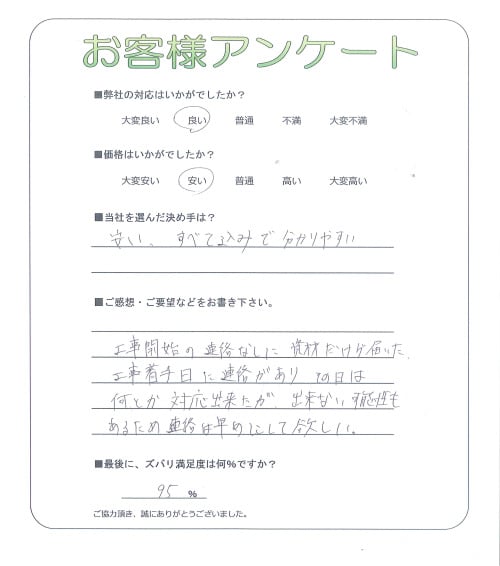 お客様アンケート
■弊社の対応はいかがでしたか？
大変良い 良い 普通 不満 大変不満
■価格はいかがでしたか？
大変安い 安い 普通 高い 大変高い
■当社を選んだ決め手は？
安い、すべて込みで分かりやすい
■ご感想・ご要望などをお書き下さい。
工事開始の連絡なしに資材だけが届いた、
工事着手日に連絡があり その日は
何とか対応出来たが、出来ない可能性も
あるため連絡は早めにして欲しい。
■最後に、ズバリ満足度は何%ですか？
95 %
ご協力頂き、誠にありがとうございました。